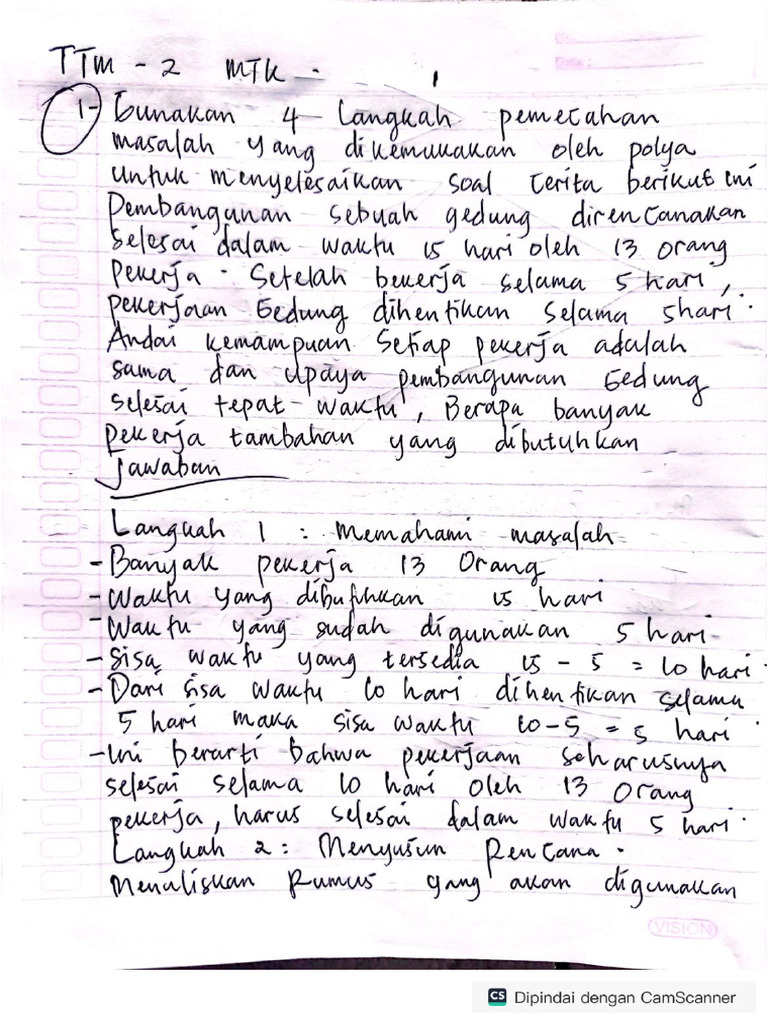 No:
Date:
TTM - 2 MTK.
1- Gunakan 4 Langkah pemecahan
masalah yang dikemukakan oleh polya
untuk menyelesaikan soal cerita berikut ini
Pembangunan sebuah gedung direncanakan
selesai dalam waktu 15 hari oleh 13 orang
pekerja. Setelah bekerja selama 5 hari,
pekerjaan Gedung dihentikan selama 5 hari.
Andai kemampuan setiap pekerja adalah
sama dan upaya pembangunan Gedung
selesai tepat waktu, Berapa banyak
pekerja tambahan yang dibutuhkan
Jawaban
Langkah 1 : Memahami masalah
- Banyak pekerja 13 Orang
- Waktu yang dibutuhkan 15 hari
- Waktu yang sudah digunakan 5 hari
- Sisa waktu yang tersedia 15 - 5 = 10 hari.
- Dari sisa waktu 10 hari dihentikan selama
5 hari maka sisa waktu 10-5 = 5 hari.
- Ini berarti bahwa pekerjaan seharusnya
selesai selama 10 hari oleh 13 orang
pekerja, harus selesai dalam waktu 5 hari.
Langkah 2 : Menyusun Rencana.
Menuliskan Rumus yang akan digunakan
VISION
CS Dipindai dengan CamScanner